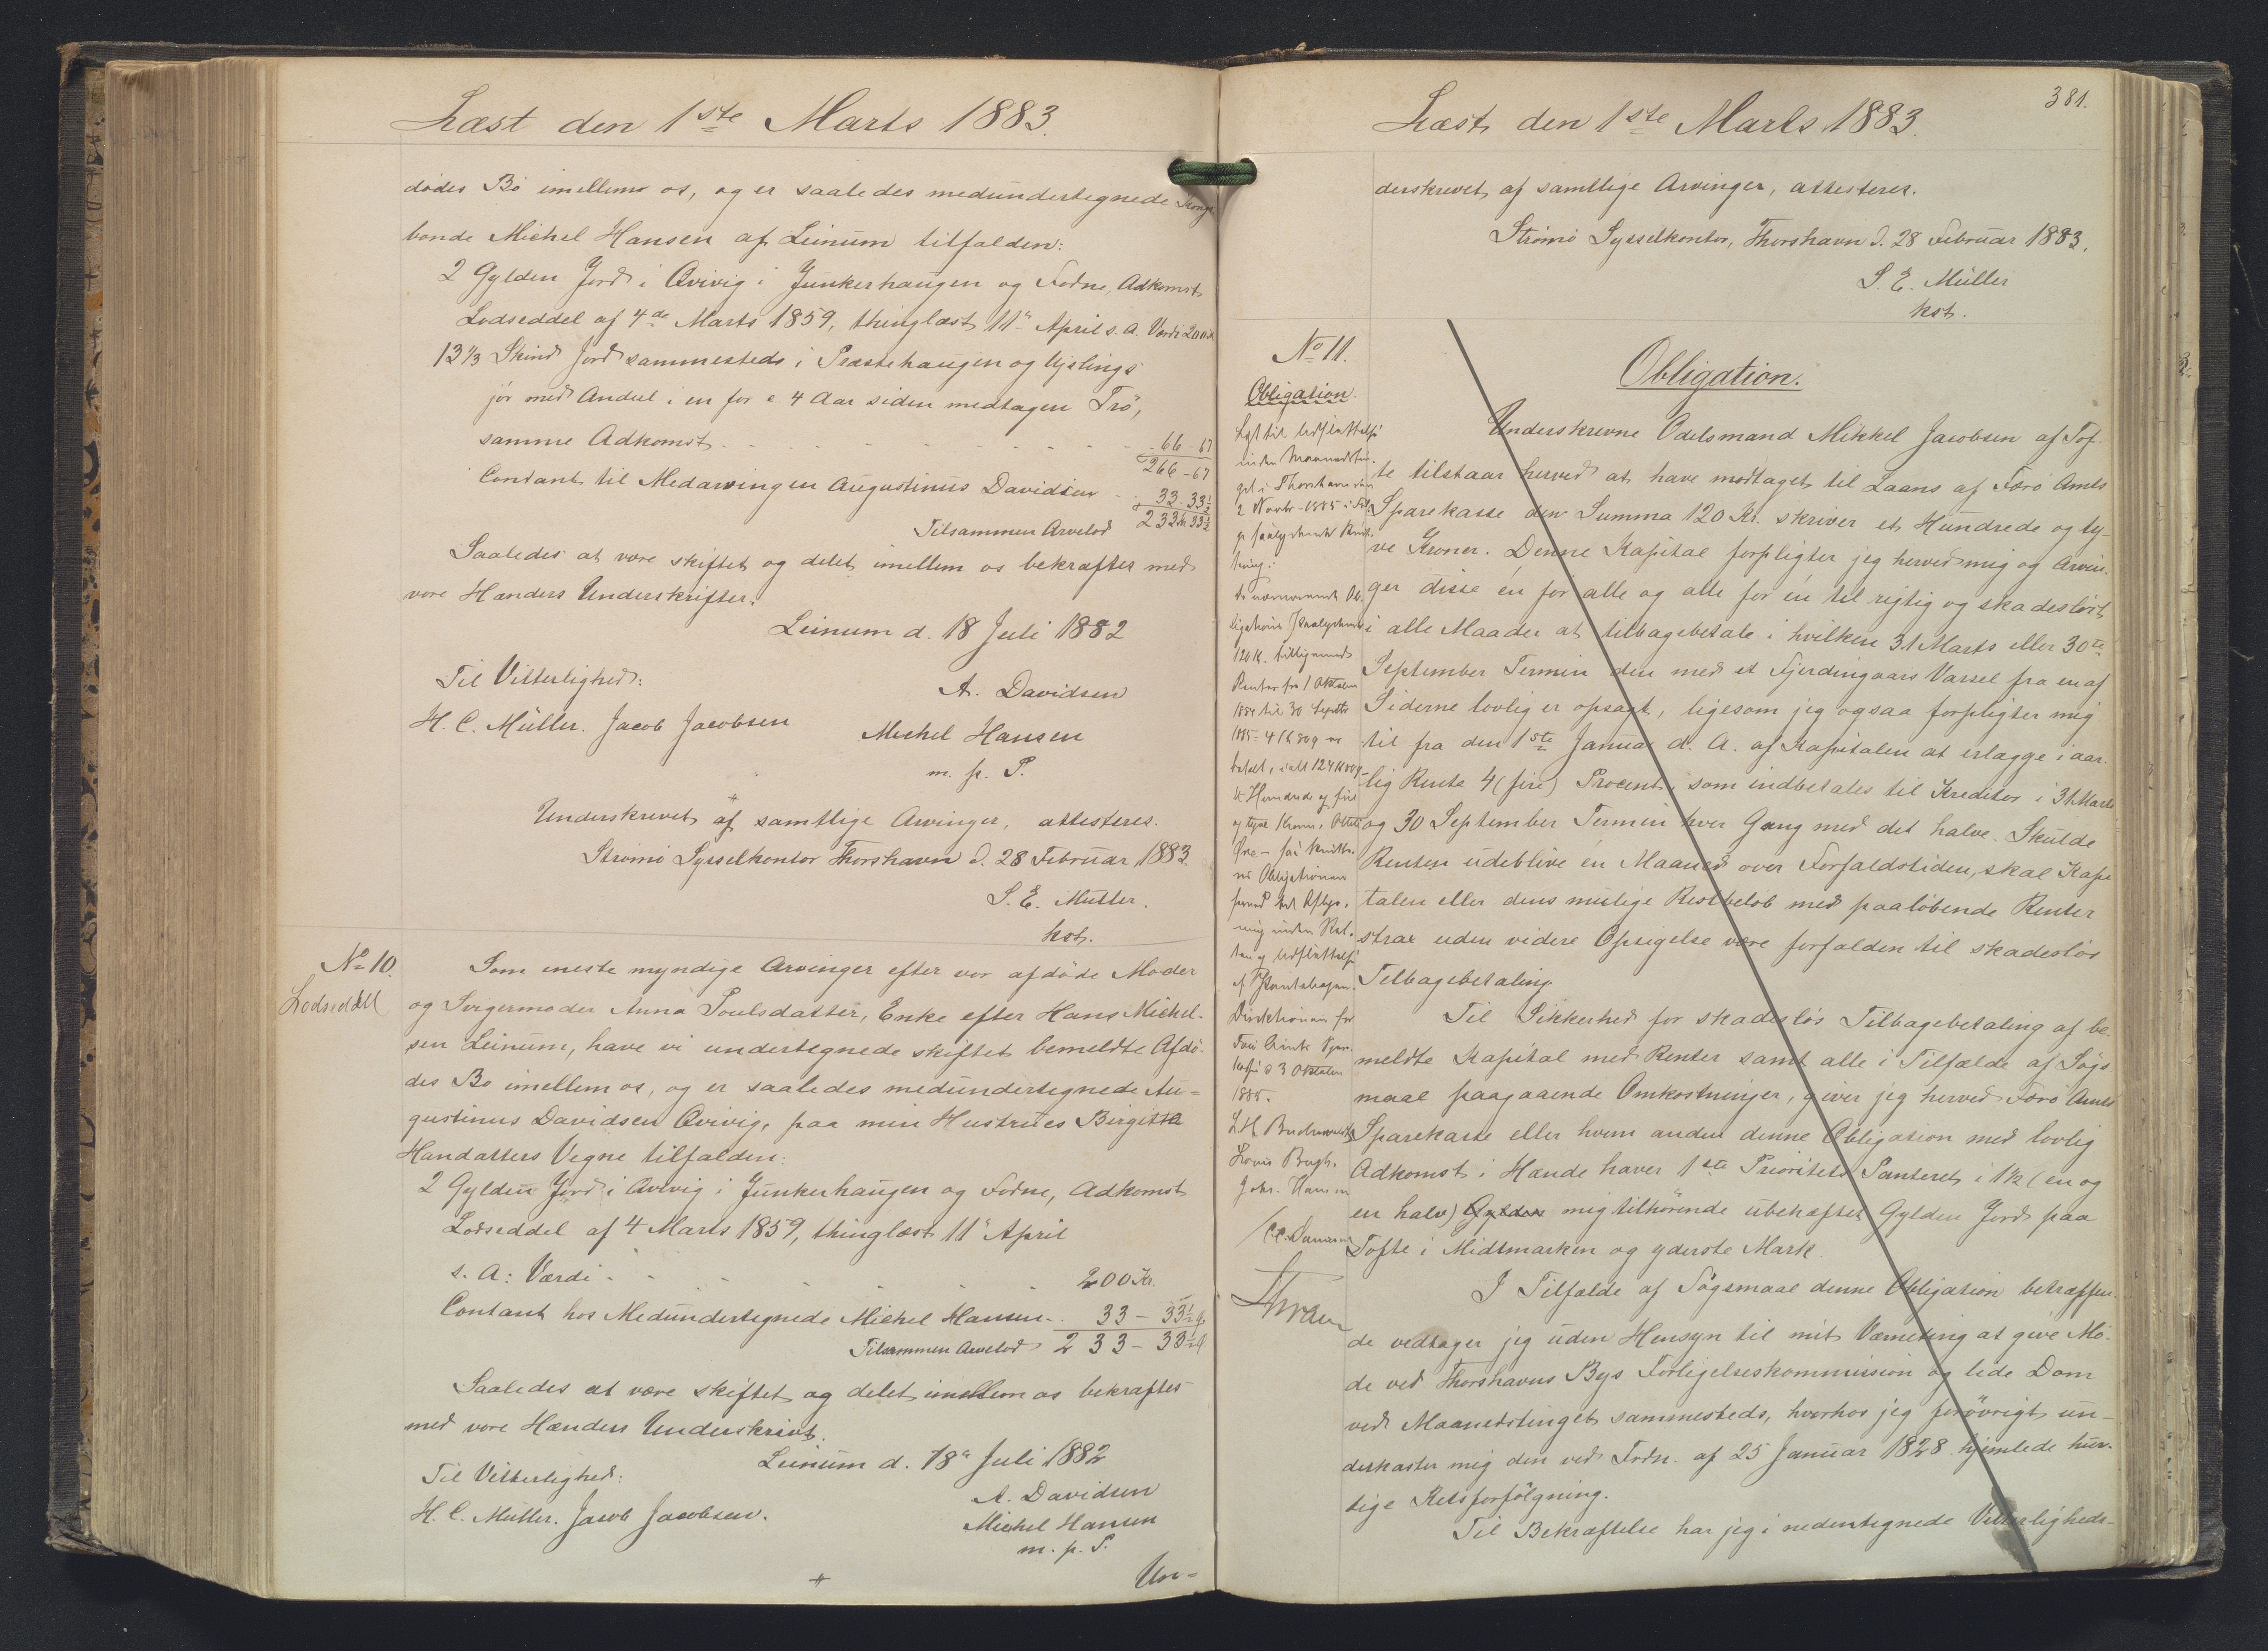 Læst den 1ste Marts 1883.
dödes Bo imellem os, og er saaledes medundertegnede Konge-
bonde Michel Hansen af Leinum tilfalden:
2 Gylden Jord i Qvivig i Junkerhaugen og Fodne, Adkomst
Lodseddel af 4de Marts 1859, thinglæst 11" April s. A. Værdi 200 Kr
13 1/3 Skind Jord sammesteds i Præstehaugen og Ujslings
jör med Andeel i en for c 4 Aar siden medtagen Trö,
samme Adkomst - - - - - 66-67
266-67
Contant til Medarvingen Augustinus Davidsen - 33-33 1/3
Tilsammen Arvelod 233 Kr. 33 1/3
Saaledes at være skiftet og delet imellem os bekræftes med
vore Hænders Underskrifter.
Leinum d. 18 Juli 1882
Til Vitterlighed:
A. Davidsen
H. C. Müller. Jacob Jacobsen
Michel Hansen
m. p. P.
Underskrevet af samtlige Arvinger, attesteres.
Strömö Sysselkontor Thorshavn d. 28 Februar 1883.
S. E. Müller.
kst.
No 10.
Lodseddel
Som eneste myndige Arvinger efter vor afdöde Moder
og Svigermoder Anna Poulsdatter, Enke efter Hans Michel-
sen Leinum, have vi undertegnede skiftet bemeldte Afdö-
des Bo imellem os, og er saaledes medundertegnede Au-
gustinus Davidsen Qvivig, paa min Hustrues Birgitta
Hansdatters Vegne tilfalden:
2 Gylden Jord i Qvivig i Junkerhaugen og Fodne, Adkomst
Lodseddel af 4 Marts 1859, thinglæst 11" April
s. A: Værdi - - - - - 200 Kr.
Contant hos Medundertegnede Michel Hansen - 33-33 1/3
Tilsammen Arvelod 233-33 1/3
Saaledes at være skiftet og delet imellem os bekræftes
med vore Hænders Underskrivt.
Leinum d. 18" Juli 1882
Til Vitterlighed:
A. Davidsen
H. C. Müller. Jacob Jacobsen.
Michel Hansen
m. p. P.
Un-
381.
Læst den 1ste Marts 1883.
derskrevet af samtlige Arvinger, attesteres.
Strömö Sysselkontor, Thorshavn d. 28 Februar 1883.
S. E. Müller
kst.
No 11.
Obligation.
Lyst til Udslettelse
inden Maanedsthin-
get i Thorshavn den
2 Novbr 1885 i Föl-
ge
saalydende
ning:
nærværende Ob-
ligations Paalydende
120 K. tilligemed
Renter fra 1 Oktober
1884 til 30 Septbr
1885 = 4 K 80 q er
betalt, ialt 124 K 80 q
et Hundrede og fire
og tyve Kroner, Otteti
Öre - saa
Obligationen
inden Ret-
ten og Udslettelse
af Pantebogen.
Direktionen for
Færö Amts Spare-
kasse d 3 Oktober
1885.
Louis Bergh.
Johs. Hansen
Obligation.
Underskrevne Odelsmand Mikkel Jacobsen af Tof-
te tilstaar herved at have modtaget til Laans af Færö Amts
Sparekasse den Summa 120 Kr. skriver et Hundrede og ty-
ve Kroner. Denne Kapital forpligter jeg herved mig og Arvin-
ger disse én for alle og alle for én til rigtig og skadeslöst
i alle Maader at tilbagebetale i hvilken 31 Marts eller 30te
September Termin den med et Fjerdingaars Varsel fra en af
Siderne lovlig er opsagt, ligesom jeg ogsaa forpligter mig
til fra den 1ste Januar d. A. af Kapitalen at erlægge i aar-
lig Rente 4 (fire) Procent, som indbetales til Kreditor i 31 Marts
og 30 September Termin hver Gang med det halve. Skulde
Renten udeblive én Maaned over Forfaldstiden, skal Kapi
talen eller dens mulige Restbelöb med paalöbende Renter
strax uden videre Opsigelse være forfalden til skadeslös
Tilbagebetaling.
Til Sikkerhed for skadeslös Tilbagebetaling af be-
meldte Kapital med Renter samt alle i Tilfælde af Sögs
maal paagaaende Omkostninger, giver jeg herved Færö Amts
Sparekasse eller hvem anden denne Obligation med lovlig
Adkomst i Hænde haver 1ste Prioritets Panteret i 1 1/2 (en og
en halv) Gylden mig tilhörende ubehæftet Gylden Jord paa
Tofte i Midtmarken og yderste Mark.
I Tilfælde af Sögsmaal denne Obligation betræffen-
de vedtager jeg uden Hensyn til mit Værneting at give Mö-
de ved Thorshavns Bys Forligelseskommission og lide Dom
ved Maanedstinget sammesteds, hvorhos jeg forövrigt un-
derkaster mig den ved Frdn. af 25 Januar 1828 hjemlede hur-
tige Retsforfölgning.
Til Bekræftelse har jeg i nedentegnede Vitterligheds-